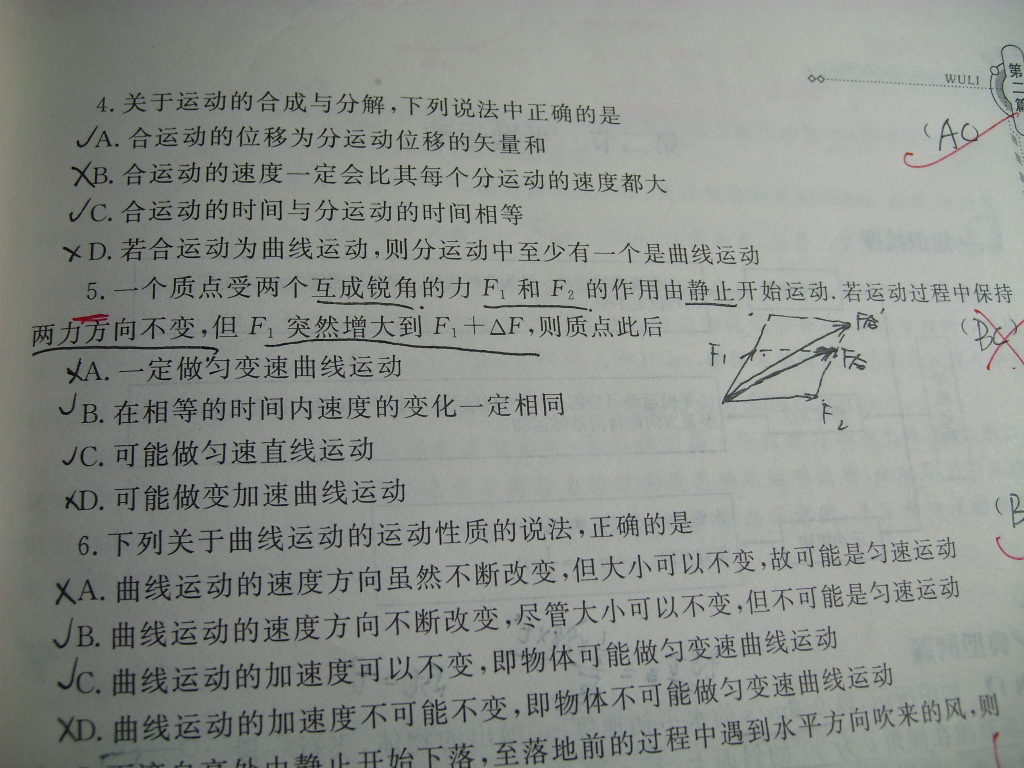 WULI
第二篇
4. 关于运动的合成与分解,下列说法中正确的是
(AC
✓A. 合运动的位移为分运动位移的矢量和
×B. 合运动的速度一定会比其每个分运动的速度都大
✓C. 合运动的时间与分运动的时间相等
×D. 若合运动为曲线运动,则分运动中至少有一个是曲线运动
5. 一个质点受两个互成锐角的力 F₁ 和 F₂ 的作用由静止开始运动. 若运动过程中保持
两力方向不变,但 F₁ 突然增大到 F₁+ΔF,则质点此后
(BC)
F合'
F₁
F合
F₂
×A. 一定做匀变速曲线运动
✓B. 在相等的时间内速度的变化一定相同
✓C. 可能做匀速直线运动
×D. 可能做变加速曲线运动
6. 下列关于曲线运动的运动性质的说法,正确的是
(B
×A. 曲线运动的速度方向虽然不断改变,但大小可以不变,故可能是匀速运动
✓B. 曲线运动的速度方向不断改变,尽管大小可以不变,但不可能是匀速运动
✓C. 曲线运动的加速度可以不变,即物体可能做匀变速曲线运动
×D. 曲线运动的加速度不可能不变,即物体不可能做匀变速曲线运动
由静止开始下落,至落地前的过程中遇到水平方向吹来的风,则